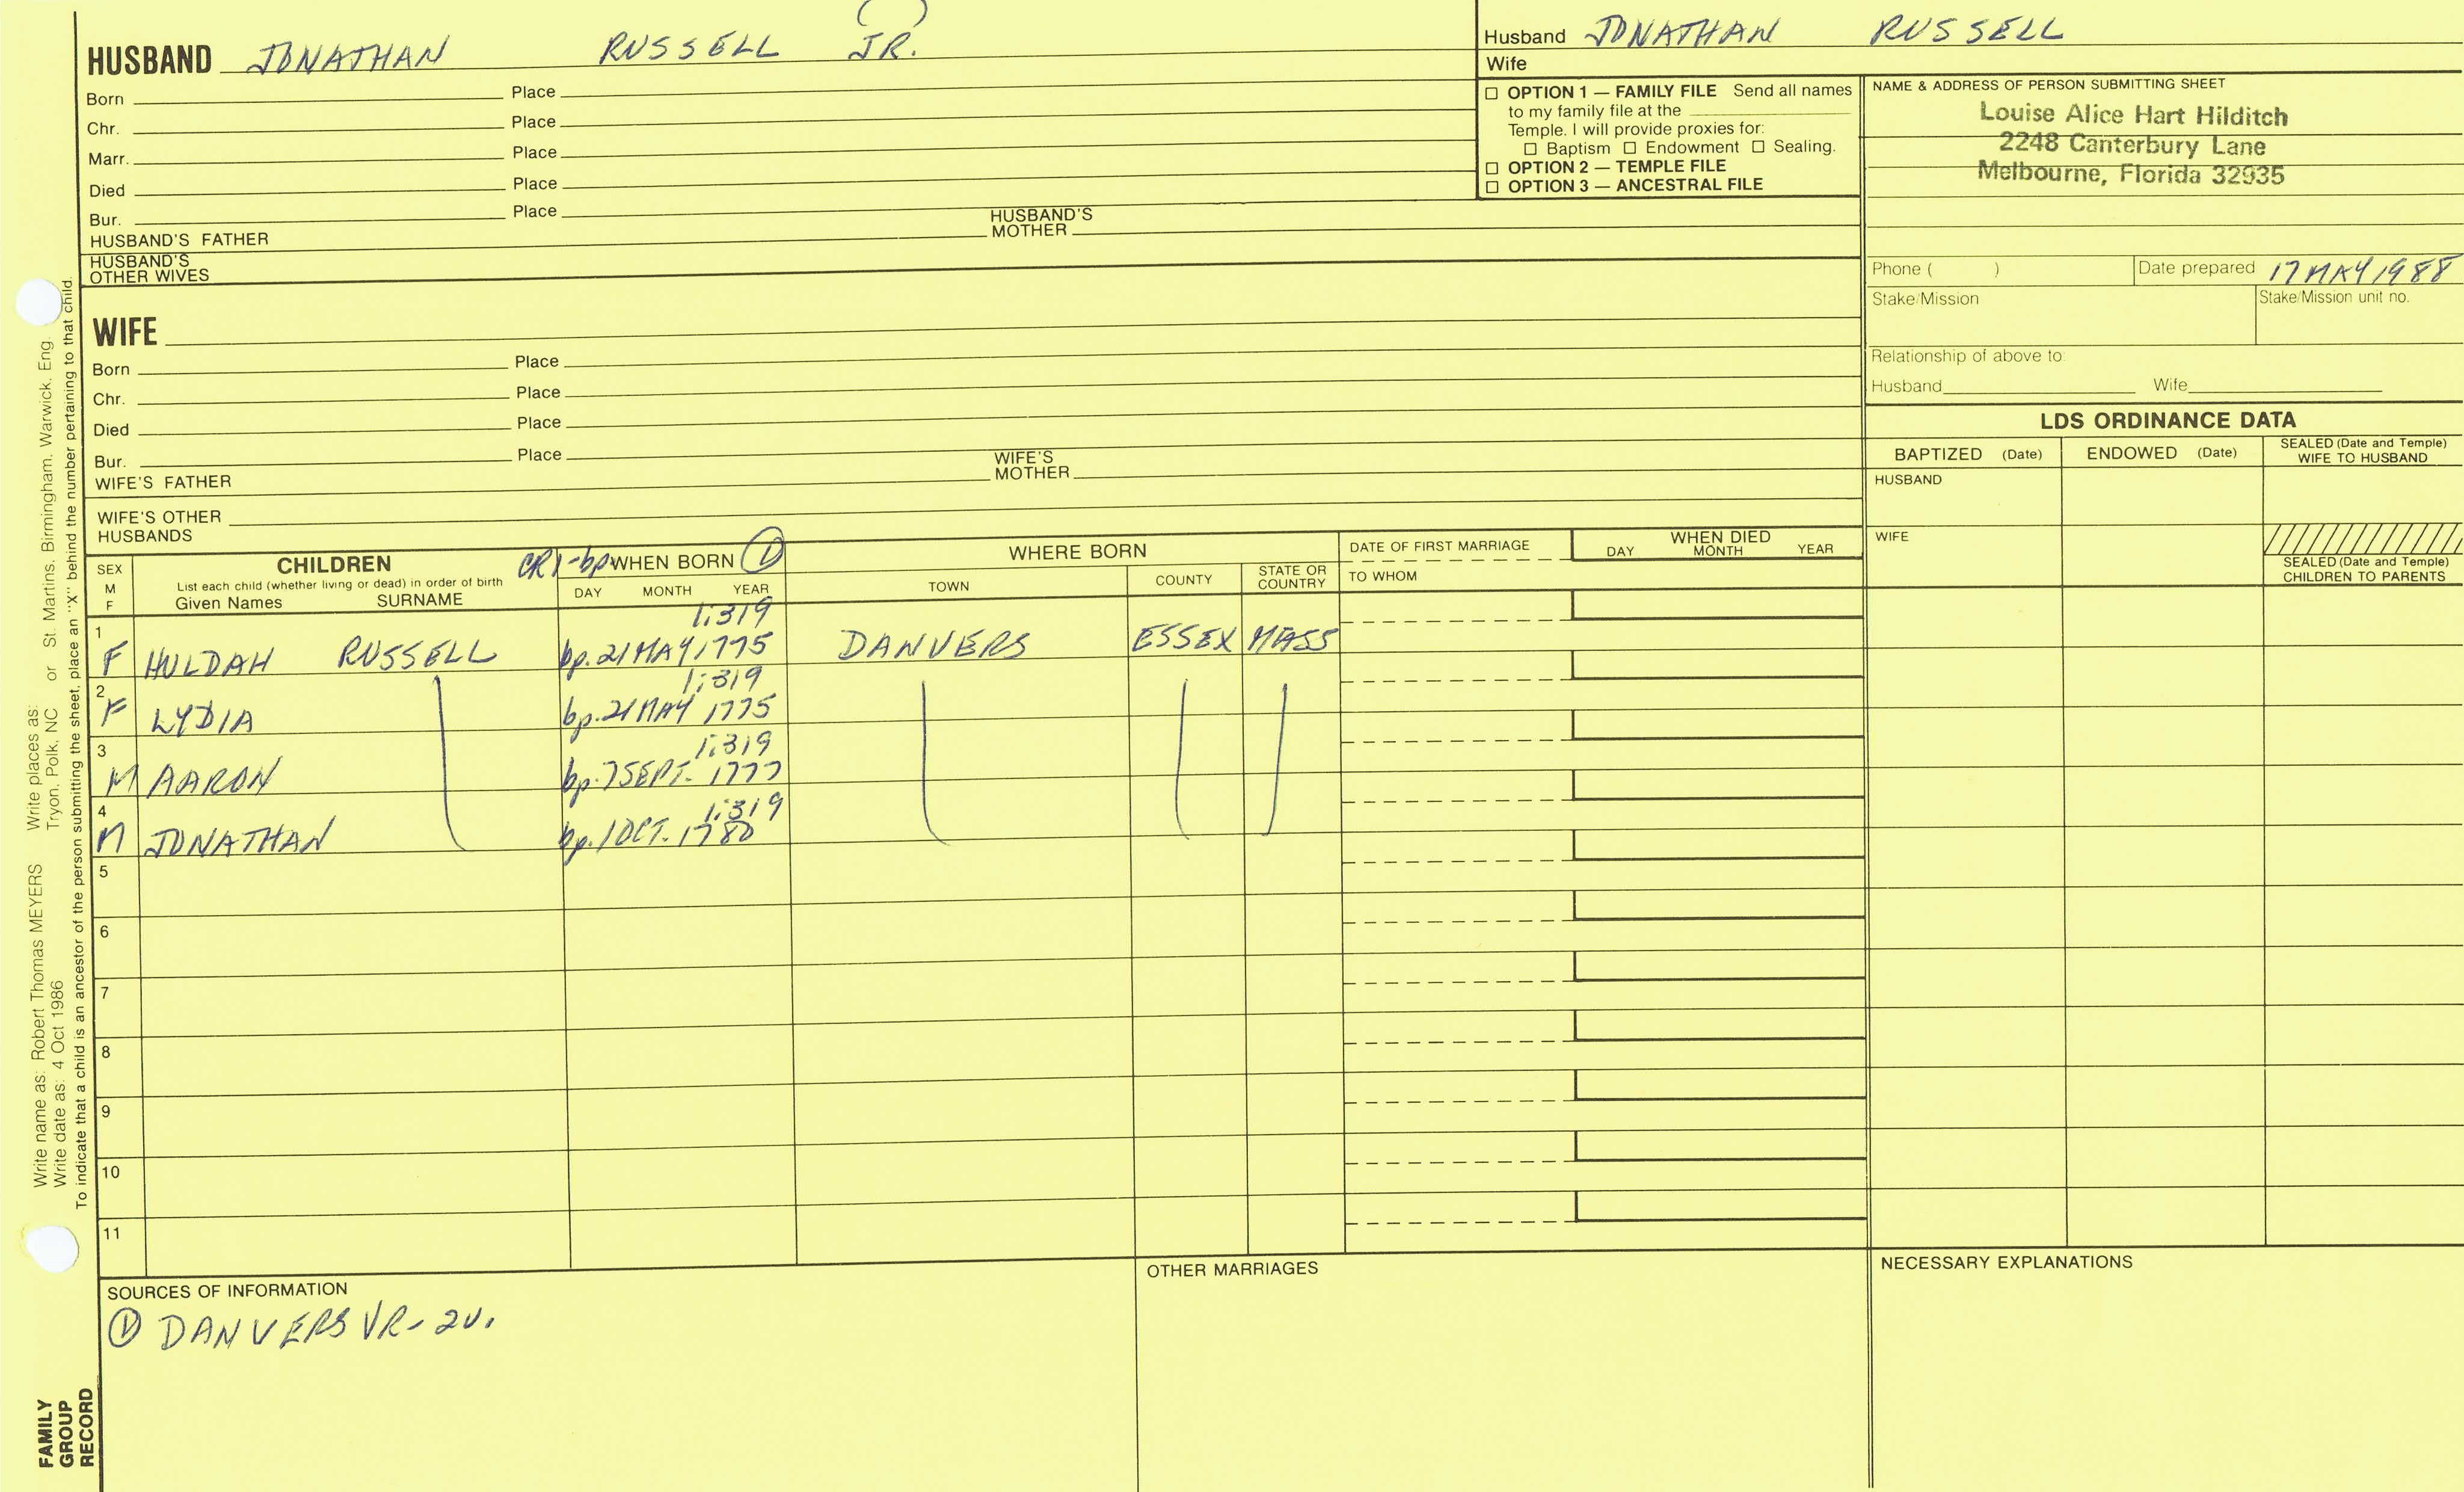 HUSBAND JONATHAN RUSSELL JR.
Born Place
Chr. Place
Marr. Place
Died Place
Bur. Place
HUSBAND'S FATHER HUSBAND'S MOTHER
HUSBAND'S OTHER WIVES
Husband JONATHAN RUSSELL
Wife
☐ OPTION 1 — FAMILY FILE Send all names
to my family file at the
Temple. I will provide proxies for:
☐ Baptism ☐ Endowment ☐ Sealing.
☐ OPTION 2 — TEMPLE FILE
☐ OPTION 3 — ANCESTRAL FILE
NAME & ADDRESS OF PERSON SUBMITTING SHEET
Louise Alice Hart Hilditch
2248 Canterbury Lane
Melbourne, Florida 32935
Phone ( ) Date prepared 17 MAY 1988
Stake/Mission Stake/Mission unit no.
Relationship of above to:
Husband Wife
WIFE
Born Place
Chr. Place
Died Place
Bur. Place
WIFE'S FATHER WIFE'S MOTHER
WIFE'S OTHER HUSBANDS
LDS ORDINANCE DATA
BAPTIZED (Date) ENDOWED (Date) SEALED (Date and Temple) WIFE TO HUSBAND
HUSBAND
WIFE
SEALED (Date and Temple) CHILDREN TO PARENTS
SEX M F
CHILDREN
List each child (whether living or dead) in order of birth
Given Names SURNAME
CR1-bp WHEN BORN ①
DAY MONTH YEAR
WHERE BORN
TOWN COUNTY STATE OR COUNTRY
DATE OF FIRST MARRIAGE
TO WHOM
WHEN DIED
DAY MONTH YEAR
1:319
1 F HULDAH RUSSELL bp. 21 MAY 1775 DANVERS ESSEX MASS
1:319
2 F LYDIA bp. 21 MAY 1775
1:319
3 M AARON bp. 7 SEPT. 1777
1:319
4 M JONATHAN bp. 1 OCT. 1780
5
6
7
8
9
10
11
SOURCES OF INFORMATION
① DANVERS VR - 2v.
OTHER MARRIAGES
NECESSARY EXPLANATIONS
Write name as: Robert Thomas MEYERS Write places as:
Write date as: 4 Oct 1986 Tryon, Polk, NC or St. Martins, Birmingham, Warwick, Eng.
To indicate that a child is an ancestor of the person submitting the sheet, place an "X" behind the number pertaining to that child.
FAMILY
GROUP
RECORD